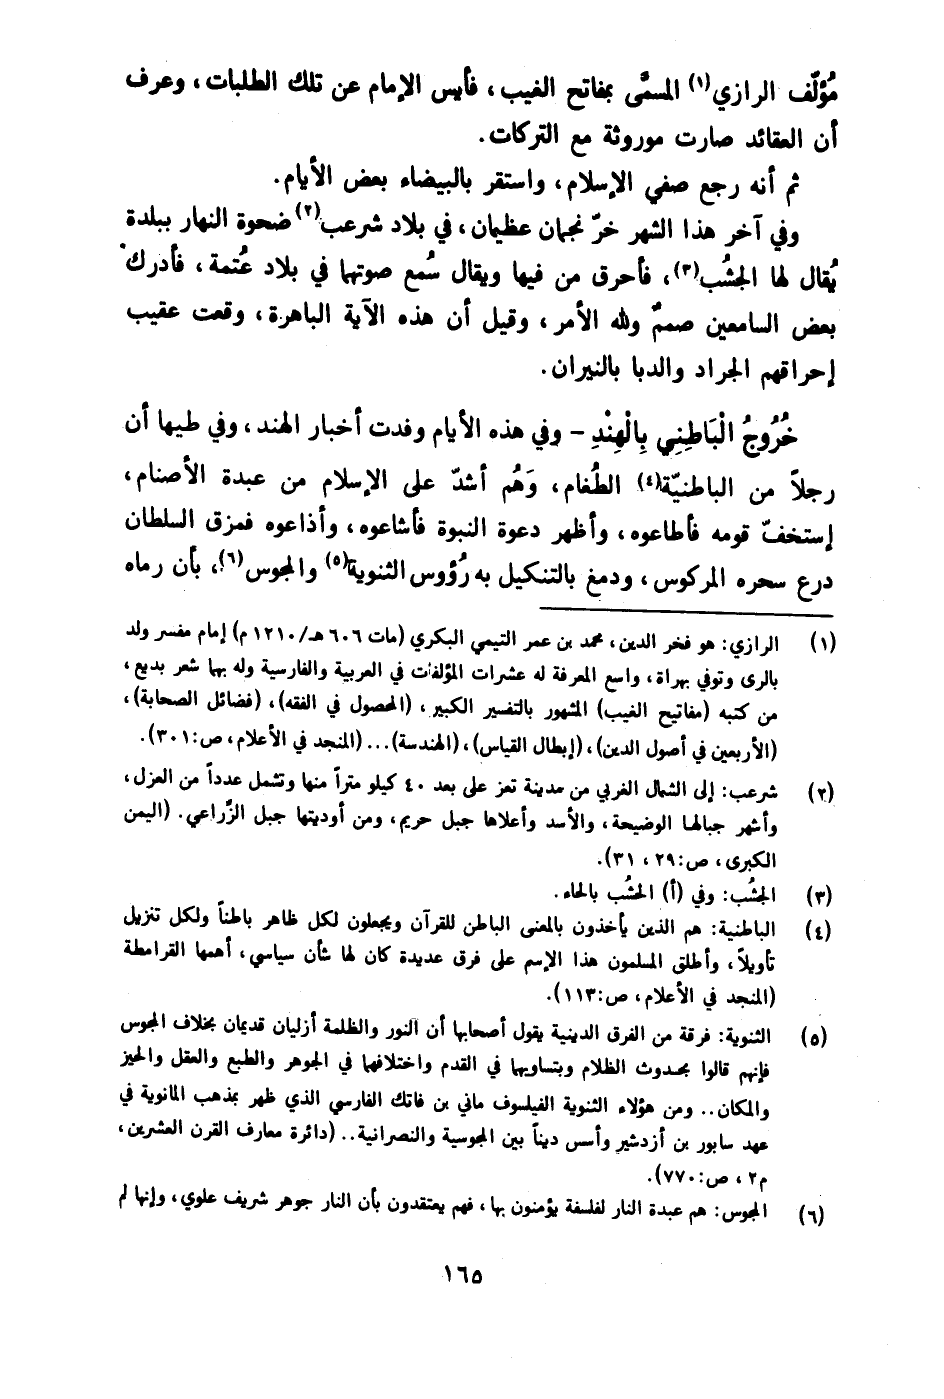 مُؤلّف الرازي(١) المسمَّى بمفاتح الغيب، فأيس الإمام عن تلك الطلبات، وعرف
أن العقائد صارت موروثة مع التركات.
ثم أنه رجع صفي الإسلام، واستقر بالبيضاء بعض الأيام.
وفي آخر هذا الشهر خرّ نجمان عظيمان، في بلاد شرعب(٢) ضحوة النهار ببلدة
يُقال لها الجشُب(٣)، فأحرق من فيها ويقال سُمع صوتها في بلاد عُتمة، فأدرك
بعض السامعين صممٌ ولله الأمر، وقيل أن هذه الآية الباهرة، وقعت عقيب
إحراقهم الجراد والدبا بالنيران.
خُرُوجُ الْبَاطِنِي بِالْهِنْدِ – وفي هذه الأيام وفدت أخبار الهند، وفي طيها أن
رجلاً من الباطنيّة(٤) الطُغام، وَهُم أشدّ على الإسلام من عبدة الأصنام،
إستخفّ قومه فأطاعوه، وأظهر دعوة النبوة فأشاعوه، وأذاعوه فمزق السلطان
درع سحره المركوس، ودمغ بالتنكيل به رُؤوس الثنوية(٥) والمجوس(٦)، بأن رماه
(١) الرازي: هو فخر الدين، محمد بن عمر التيمي البكري (مات ٦٠٦ هـ/١٢١٠ م) إمام مفسر ولد
بالري وتوفي بهراة، واسع المعرفة له عشرات المؤلفات في العربية والفارسية وله بها شعر بديع،
من كتبه (مفاتيح الغيب) المشهور بالتفسير الكبير، (المحصول في الفقه)، (فضائل الصحابة)،
(الأربعين في أصول الدين)، (إبطال القياس)، (الهندسة)... (المنجد في الأعلام، ص:٣٠١).
(٢) شرعب: إلى الشمال الغربي من مدينة تعز على بعد ٤٠ كيلو متراً منها وتشمل عدداً من العزل،
وأشهر جبالها الوضيحة، والأسد وأعلاها جبل حريم، ومن أوديتها جبل الزَّراعي. (اليمن
الكبرى، ص:٢٩، ٣١).
(٣) الجشُب: وفي (أ) الحشُب بالحاء.
(٤) الباطنية: هم الذين يأخذون بالمعنى الباطن للقرآن ويجعلون لكل ظاهر باطناً ولكل تنزيل
تأويلاً، وأطلق المسلمون هذا الإسم على فرق عديدة كان لها شأن سياسي، أهمها القرامطة
(المنجد في الأعلام، ص:١١٣).
(٥) الثنوية: فرقة من الفرق الدينية يقول أصحابها أن النور والظلمة أزليان قديمان بخلاف المجوس
فإنهم قالوا بحدوث الظلام وبتساويها في القدم واختلافها في الجوهر والطبع والعقل والحيز
والمكان.. ومن هؤلاء الثنوية الفيلسوف ماني بن فاتك الفارسي الذي ظهر بمذهب المانوية في
عهد سابور بن أزدشير وأسس ديناً بين المجوسية والنصرانية.. (دائرة معارف القرن العشرين،
م٢، ص:٧٧٠).
(٦) المجوس: هم عبدة النار لفلسفة يؤمنون بها، فهم يعتقدون بأن النار جوهر شريف علوي، وإنها لم
١٦٥